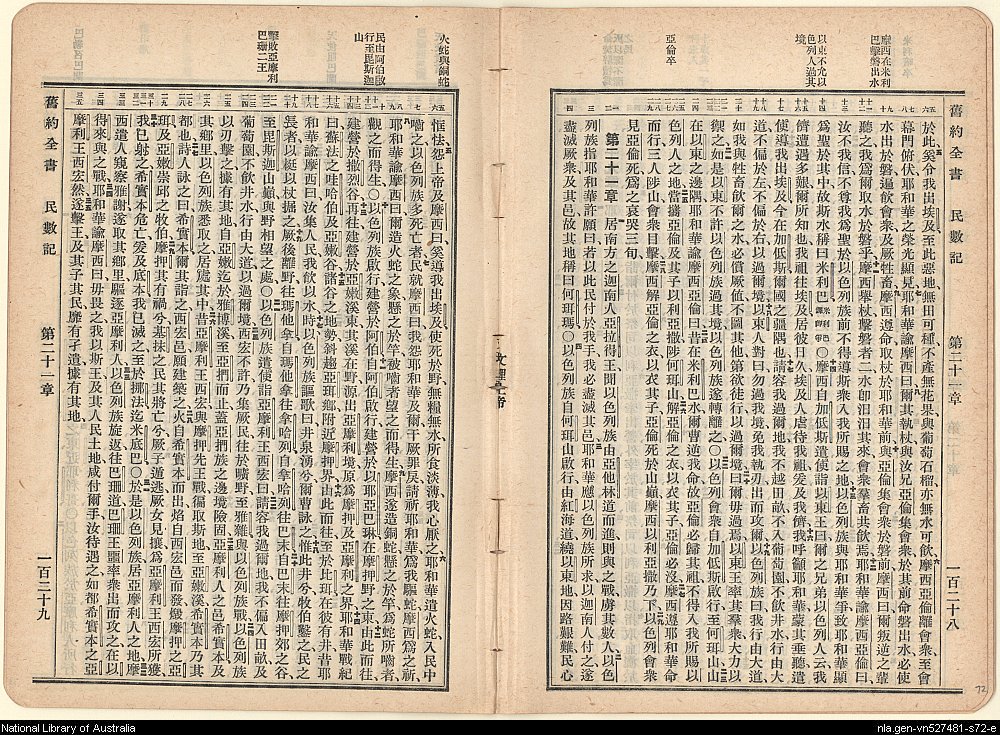 舊約全書 民數記 第二十一章 一百二十八
摩西在米利
巴擊磐出水
以東不允以
色列人過其
境
亞倫卒
於此奚令我出埃及至此惡地無田可種不產無花果與葡萄石榴亦無水可飲摩西亞倫離會衆至會
幕門俯伏耶和華之榮光顯見耶和華諭摩西曰爾其執杖與汝兄亞倫集會衆於其前命磐出水必使
水出於磐遍飲會衆及厥牲畜摩西遵命取杖於耶和華前與亞倫集會衆於磐前摩西曰爾叛逆之輩
聽之我儕當爲爾取水於磐乎摩西舉杖擊磐者二水卽汨汨其來會衆羣畜共飲焉耶和華諭摩西亞倫曰
汝不我信不尊我爲聖於以色列族前不得導斯衆入我所賜之地以色列族與耶和華爭故耶和華顯
爲聖於其中故斯水稱曰米利巴〇摩西自加低斯遣使詣以東王曰爾之兄弟以色列人云我
儕遭遇多艱爾所知也我祖往埃及居彼日久埃及人虐待我祖爰及我儕我呼籲耶和華蒙其垂聽遣
使導我出埃及今在加低斯爾國之疆隅也請容我過爾地我不越田畝不入葡萄園不飲井水行由大
道不偏於左不偏於右以過爾境以東人對曰勿過我境免我執刃出而攻爾以色列族曰我行由大道
如我與牲畜飲爾之水必償厥値不圖其他第欲徒行以過爾境曰爾毋過焉以東王率其羣衆大力以
禦之如是以東不許以色列族過其境以色列族遂轉離之〇以色列會衆自加低斯啟行至何珥山山
在以東之邊隅耶和華諭摩西亞倫曰昔在米利巴水爾曹逆我命故亞倫必歸其祖不得入我所賜以
色列人之地當攜亞倫及其子以利亞撒陟何珥山解亞倫之衣以衣其子亞倫必沒摩西遵耶和華命
而行三人陟山會衆目擊摩西解亞倫之衣以衣其子亞倫死於山巔摩西以利亞撒乃下以色列會衆
見亞倫死爲之哀哭三旬
第二十一章
居南方之迦南人亞拉得王聞以色列族由亞他林道而進則與之戰虜其數人以色
列族指耶和華許願曰若以此民付於我手我必盡滅其邑耶和華俯聽以色列族所求以迦南人付之遂
盡滅厥衆及其邑故其地稱曰何珥瑪〇以色列族自何珥山啟行由紅海道繞以東地因路艱難民心
文理
上帝
72
火蛇與銅蛇
民由阿伯啟
行至毘斯迦
山
擊敗亞摩利
巴珊二王
恇怯怨上帝及摩西曰奚導我出埃及使死於野無糧無水所食淡薄我心厭之耶和華遣火蛇入民中
嚙之以色列族多死亡者民就摩西曰我怨耶和華及爾干厥罪戾請祈耶和華爲我驅蛇摩西爲之祈
耶和華諭摩西曰爾造火蛇之象懸之於竿被嚙者望之而得生摩西遂造銅蛇懸之於竿爲蛇所嚙者
觀之而得生〇以色列族啟行建營於阿伯自阿伯啟行建營於以耶亞巴琳在摩押野之東由此而往
建營於撒烈谷再往建營於亞嫩溪東其溪在野源出亞摩利境原爲摩押及亞摩利之界耶和華戰紀
曰蘇法之哇哈及亞嫩谿谷之地勢斜趨亞珥鄉附近摩押界由此而往至於比珥在彼有井昔耶
和華諭摩西曰汝集人民我飲以水時以色列族謳歌曰井泉湧兮爾曹詠之惟此井兮牧伯鑿之民之
長者以梃以杖掘之厥後離野往瑪他拿自瑪他拿往拿哈列自拿哈列往巴末自巴末往摩押郊之谷
至毘斯迦山巔與野相望之處〇以色列族遣使詣亞摩利王西宏曰請容我過爾地我不偏入田畝及
葡萄園不飲井水行由大道以過爾國境西宏不許乃集厥民往於曠野至雅雜與以色列族戰以色列族
以刃擊之據有其地自亞嫩迄於雅博溪至亞捫而止蓋亞捫族之邊境險固亞摩利人之邑希實本及
其鄉里以色列族悉取之居處其中昔亞摩利王西宏與摩押先王戰徧取斯地至亞嫩溪希實本乃其
都也詩人詠之曰希實本爾其詣之西宏邑願建築之火自希實本而出焰自西宏邑而發燬摩押之亞
珥及亞嫩崇邱之牧伯摩押其有禍兮基抹之民其將亡兮厥子遁逃厥女見攘爲亞摩利王西宏所獲
我已射之希實本危亡爰及底本我已滅之至於挪法迄米底巴〇於是以色列族居亞摩利人之地摩
西遣人窺察雅謝遂取其鄉里驅逐亞摩利人以色列族旋返往巴珊道巴珊王噩率衆出而攻之在以
得來與之戰耶和華諭摩西曰毋畏之我以斯王及其人民土地咸付爾手汝待遇之如都希實本之亞
摩利王西宏然遂擊王及其子其民靡有孑遺據有其地
舊約全書 民數記 第二十二章 一百二十九
National Library of Australia
nla.gen-vn527481-s72-e